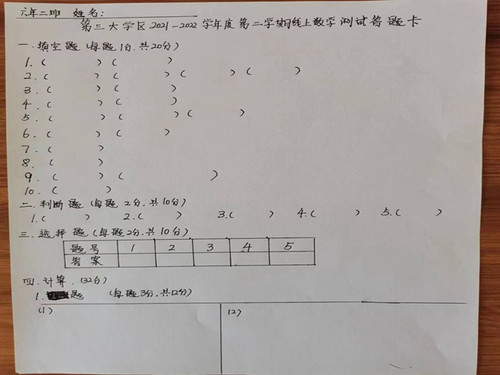 六年三班 姓名:
第三大学区2021-2022学年度第二学期线上数学测试答题卡
一.填空题(每题1分,共20分)
1.( )( )
2.( )( )( )( )( )
3.( )( )
4.( )( )
5.( )( )( )( )
6.( )( )
7.( )
8.( )
9.( )( )
10.( )
二.判断题(每题2分,共10分)
1.( ) 2.( ) 3.( ) 4.( ) 5.( )
三.选择题(每题2分,共10分)
题号 1 2 3 4 5
答案
四.计算.(32分)
1. 题 (每题3分,共12分)
(1) (2)